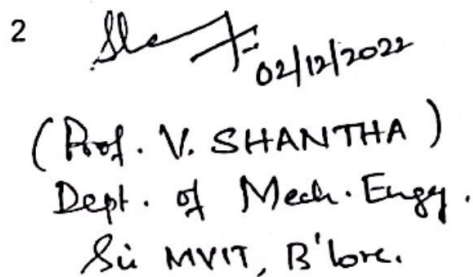 2
02/12/2022
(Prof. V. SHANTHA)
Dept. of Mech. Engg.
Sri MVIT, B'lore.